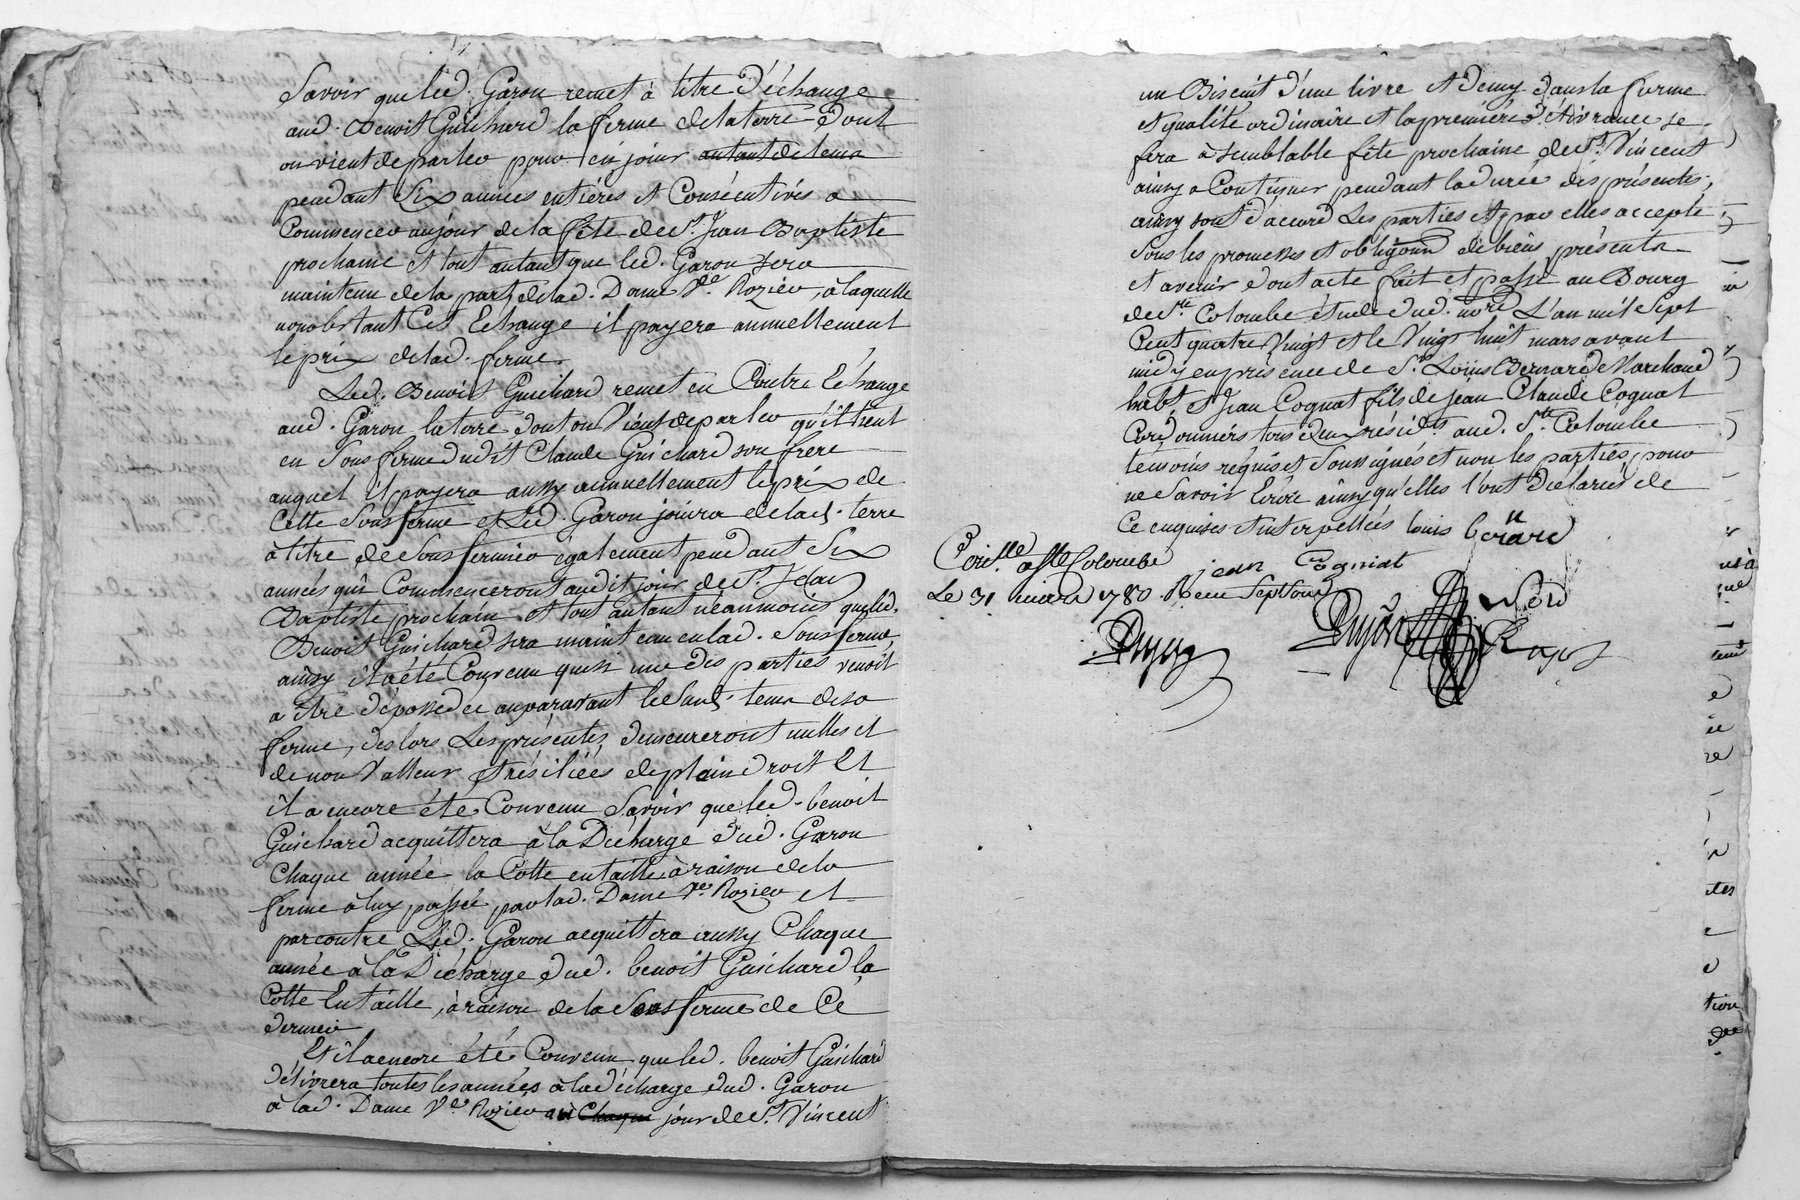 Savoir que led. Garon remet à titre d'échange
aud. Benoit Guichard la ferme de la terre dont
on vient de parler pour en jouir autant de tems
pendant Six années entières et Consécutives a
Commencer au jour de la fête de St. Jean Baptiste
prochaine et tout autant que led. Garon sera
maintenu de la part de lad. Dame Ve. Rozier, à laquelle
nonobstant Cet Echange il payera annuellement
le prix de lad. ferme.
Led. Benoit Guichard remet en Contre Echange
aud. Garon la terre dont on Vient de parler qu'il tient
en Sous ferme dudit Claude Guichard son frère
auquel il payera aussy annuellement le prix de
Cette Sous ferme et Led. Garon jouira de lad. terre
à titre de Sous fermier également pendant Six
années qui Commenceront audit jour de St. Jean
Baptiste prochain et tout autant néanmoins que led.
Benoit Guichard sera maintenu en lad. Sous ferme,
ainsy il a été Convenu que si une des parties venoit
a être dépossedée auparavant le Sud. tems de sa
ferme, des lors Les présentes demeureront nulles et
de non Valleur et résiliées de plain droit Et
il a encore été Convenu Savoir que led. benoit
Guichard acquittera à la Décharge dud. Garon
Chaque année la Cotte en taille à raison de la
ferme à luy passée par lad. Dame Ve. Rozier et
par contre Led. Garon acquittera aussy Chaque
année à la Décharge dud. benoit Guichard la
Cotte En taille, à raison de la Sous ferme de Ce
dernier
Et il a encore été Convenu que led. benoit Guichard
délivrera toutes les années à la décharge dud. Garon
à lad. Dame Ve. Rozier au Chaque jour de St. Vincent
un Biscuit d'une livre et demy dans la forme
et qualité ordinaire et la première délivrance se
fera à semblable fête prochaine de St. Vincent
ainsy a Continuer pendant la durée des présentes,
ainsy sont d'accord Les parties et par elles accepté
Sous les promesses et obligaons de biens présents
et avenir dont acte fait et passé au Bourg
de Ste Colombe étude dud. nore L'an mil Sept
Cent quatre Vingt et le Vingt huit mars avant
midy en présence de Sr. Louis Bernard Marchand
habt. et Jean Cognat fils de jean Claude Cognat
Cordonniers tous deux résidts aud. Ste Colombe
temoins requis et Soussignés et non les parties pour
ne Savoir Ecrire ainsy qu'elles l'ont déclarées de
Ce enquises et interpellées louis bernard
Conllé a Ste Colombe
jean Cogniat
Le 31 mars 1780 Reçu Sept sous